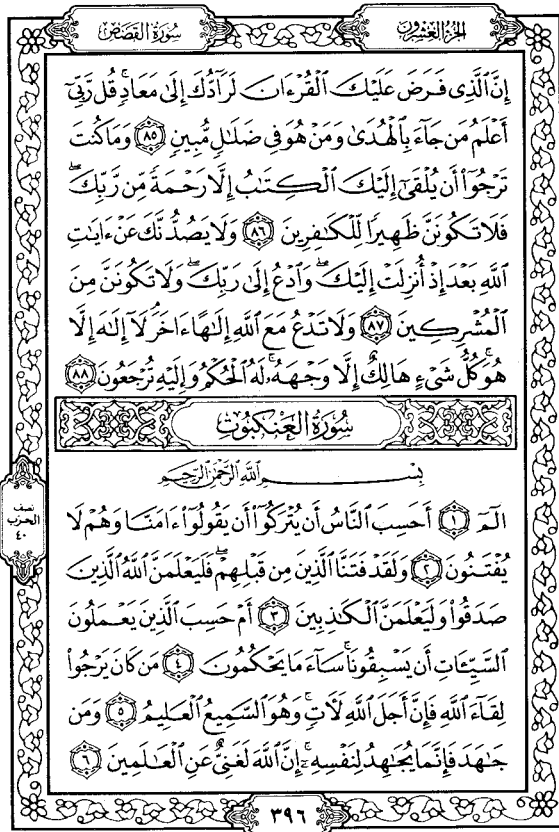 سورة القصص
الجزء العشرون
إِنَّ ٱلَّذِى فَرَضَ عَلَيْكَ ٱلْقُرْءَانَ لَرَآدُّكَ إِلَىٰ مَعَادٍ ۚ قُل رَّبِّىٓ
أَعْلَمُ مَن جَآءَ بِٱلْهُدَىٰ وَمَنْ هُوَ فِى ضَلَـٰلٍ مُّبِينٍ ٨٥ وَمَا كُنتَ
تَرْجُوٓا۟ أَن يُلْقَىٰٓ إِلَيْكَ ٱلْكِتَـٰبُ إِلَّا رَحْمَةً مِّن رَّبِّكَ ۖ
فَلَا تَكُونَنَّ ظَهِيرًا لِّلْكَـٰفِرِينَ ٨٦ وَلَا يَصُدُّنَّكَ عَنْ ءَايَـٰتِ
ٱللَّهِ بَعْدَ إِذْ أُنزِلَتْ إِلَيْكَ ۖ وَٱدْعُ إِلَىٰ رَبِّكَ ۖ وَلَا تَكُونَنَّ مِنَ
ٱلْمُشْرِكِينَ ٨٧ وَلَا تَدْعُ مَعَ ٱللَّهِ إِلَـٰهًا ءَاخَرَ ۘ لَآ إِلَـٰهَ إِلَّا
هُوَ ۚ كُلُّ شَىْءٍ هَالِكٌ إِلَّا وَجْهَهُۥ ۚ لَهُ ٱلْحُكْمُ وَإِلَيْهِ تُرْجَعُونَ ٨٨
سُورَةُ العَنكَبُوت
بِسْمِ ٱللَّهِ ٱلرَّحْمَـٰنِ ٱلرَّحِيمِ
الٓمٓ ١ أَحَسِبَ ٱلنَّاسُ أَن يُتْرَكُوٓا۟ أَن يَقُولُوٓا۟ ءَامَنَّا وَهُمْ لَا
يُفْتَنُونَ ٢ وَلَقَدْ فَتَنَّا ٱلَّذِينَ مِن قَبْلِهِمْ ۖ فَلَيَعْلَمَنَّ ٱللَّهُ ٱلَّذِينَ
صَدَقُوا۟ وَلَيَعْلَمَنَّ ٱلْكَـٰذِبِينَ ٣ أَمْ حَسِبَ ٱلَّذِينَ يَعْمَلُونَ
ٱلسَّيِّـَٔاتِ أَن يَسْبِقُونَا ۚ سَآءَ مَا يَحْكُمُونَ ٤ مَن كَانَ يَرْجُوا۟
لِقَآءَ ٱللَّهِ فَإِنَّ أَجَلَ ٱللَّهِ لَـَٔاتٍ ۚ وَهُوَ ٱلسَّمِيعُ ٱلْعَلِيمُ ٥ وَمَن
جَـٰهَدَ فَإِنَّمَا يُجَـٰهِدُ لِنَفْسِهِۦٓ ۚ إِنَّ ٱللَّهَ لَغَنِىٌّ عَنِ ٱلْعَـٰلَمِينَ ٦
نصف
الحزب
٤٠
٣٩٦